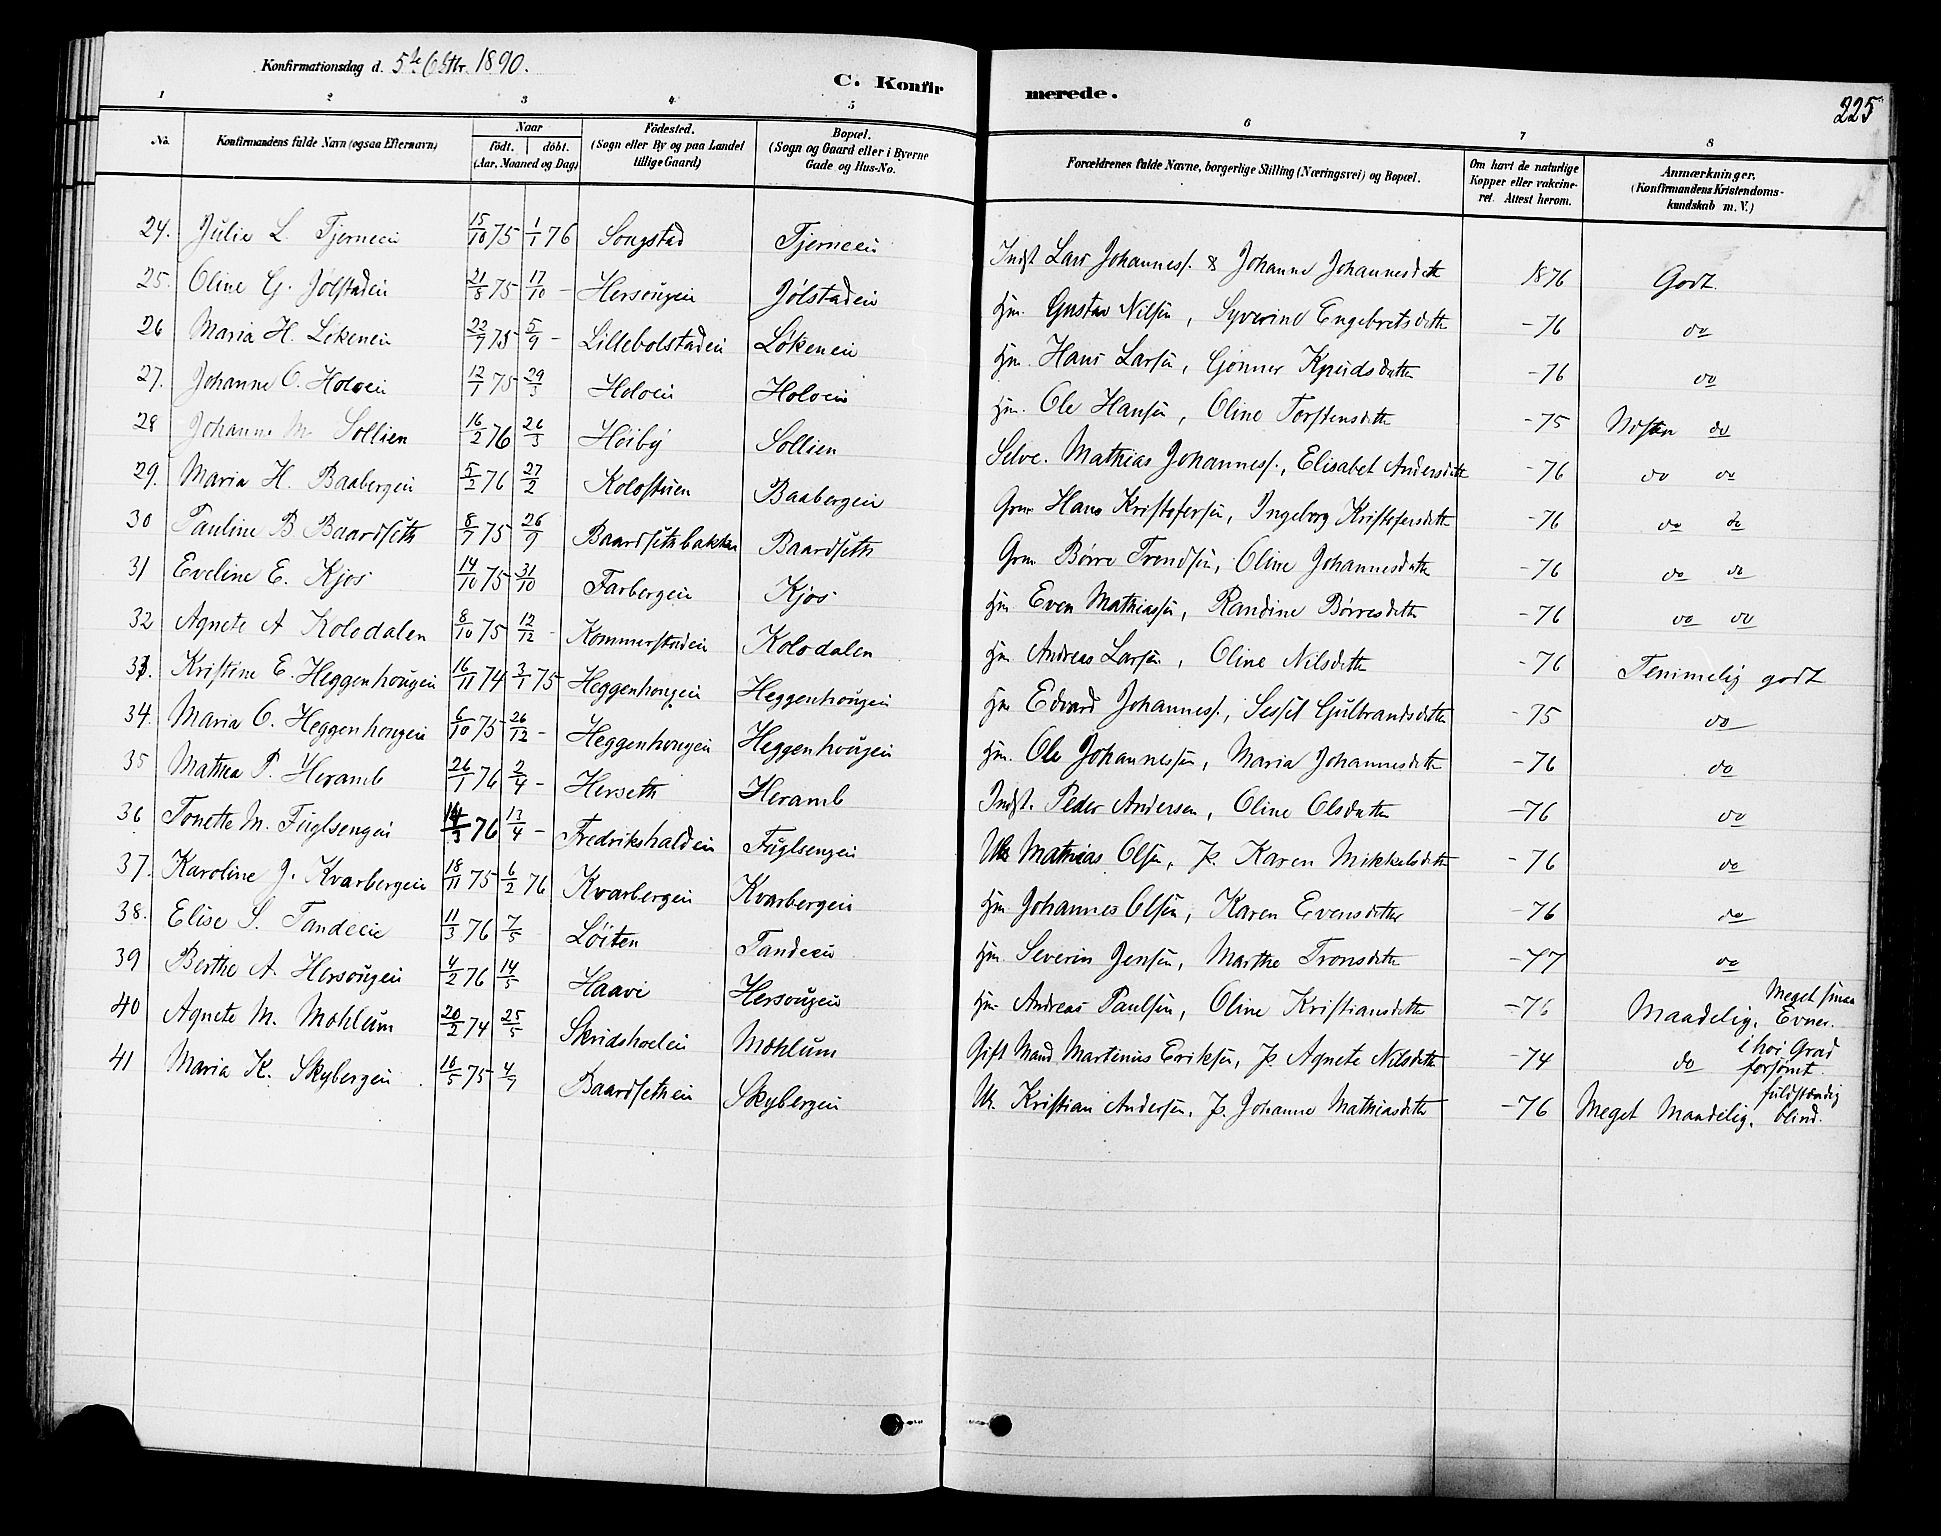 Konfirmationsdag d. 5te Octbr. 1890.
C. Konfirmerede.
225
1 2 3 4 5 6 7 8
No. Konfirmandens fulde Navn (ogsaa Efternavn) Naar født. døbt. (Aar, Maaned og Dag) Fødested. (Sogn eller By og paa Landet tillige Gaard) Bopæl. (Sogn og Gaard eller i Byerne Gade og Hus-No. Forældrenes fulde Navne, borgerlige Stilling (Næringsvei) og Bopæl. Om havt de naturlige Kopper eller vakcineret. Attest herom. Anmærkninger. (Konfirmandens Kristendomskundskab m. V.)
24. Julie L. Tjerneeie 15/10 75 1/1 76 Songstad Tjerneeie Indst Lars Johanness. & Johanne Johannesdttr 1876 Godt
25. Oline G. Jølstadeie 21/8 75 17/10 - Hersougeie Jølstadeie Hm. Gustav Nilsen, Syverine Engebretsdttr -76 do
26 Maria H. Løkeneie 22/7 75 5/9 - Lillebolstadeie Løkeneie Hm. Hans Larsen, Gønner -76 do
27. Johanne O. Holveie 12/1 75 29/3 Holveie Holveie Hm. Ole Hansen, Oline Torstensdttr -75 Næsten do
28 Johanne M. Sollien 16/2 76 26/3 Høiby Sollien Selve. Mathias Johanness., Elisabet Andersdttr -76 do do
29. Maria H. Baabergeie 5/2 76 27/2 Kolostuen Baabergeie Grm Hans Kristofersen, Ingeborg Kristofersdttr -76 do do
30 Pauline B Baardseth 8/7 75 26/9 Baardsethbakken Baardseth Grm. Børre Trondsen, Oline Johannesdttr -76 do do
31 Eveline E. Kjos 14/10 75 31/10 Farbergeie Kjos Hm Even Mathiassen, Randine Børresdttr -76 do do
32 Agnete A Kolodalen 8/10 75 12/12 - Kommerstadeie Kolodalen Hm Andreas Larsen, Oline Nilsdttr -76 Temmelig godt
33. Kristine E. Heggenhougeie 16/11 74 3/1 75 Heggenhougeie Heggenhougeie Hm Edvard Johanness., Sessil Gulbrandsdttr -75 do
34. Maria O. Heggenhougeie 6/10 75 26/12 - Heggenhougeie Heggenhougeie Hm. Ole Johannessen, Maria Johannesdttr -76 do
35 Mathea P. Heramb 26/1 76 2/4 - Herseth Heramb Indst. Peder Andersen, Oline Olsdatter -76 do
36 Tonette M. Fuglsengeie 14/3 76 13/4 - Fredrikshaldeie Fuglsengeie Uk Mathias Olsen, P. Karen Mikkelsdttr -76 do
37. Karoline J. Kvarbergeie 18/11 75 6/2 76 Kvarbergeie Kvarbergeie Hm. Johannes Olsen, Karen Evensdttr -76 do
38. Elise S. Tandeeie 11/3 76 7/5 Løiten Tandeeie Hm. Severin Jensen, Marthe Tronsdttr -77 do
39 Berthe A. Hersougeie 4/2 76 14/5 Haavi Hersougeie Hm Andreas Paulsen, Oline Kristiansdttr -76 Maadelig. Meget smaa Evner.
40 Agnete M. Mohlum 20/2 74 25/5 Skridsholeie Mohlum Gift Mand Martinus Eriksen, P. Agnete Nilsdttr -74 do i høi Grad forsømt.
41 Maria K. Skybergeie 16/5 75 4/7 Baardsetheie Skybergeie Uk. Kristian Andersen, P. Johanne Mathiasdttr -76 Meget Maadelig. fuldstændig blind.